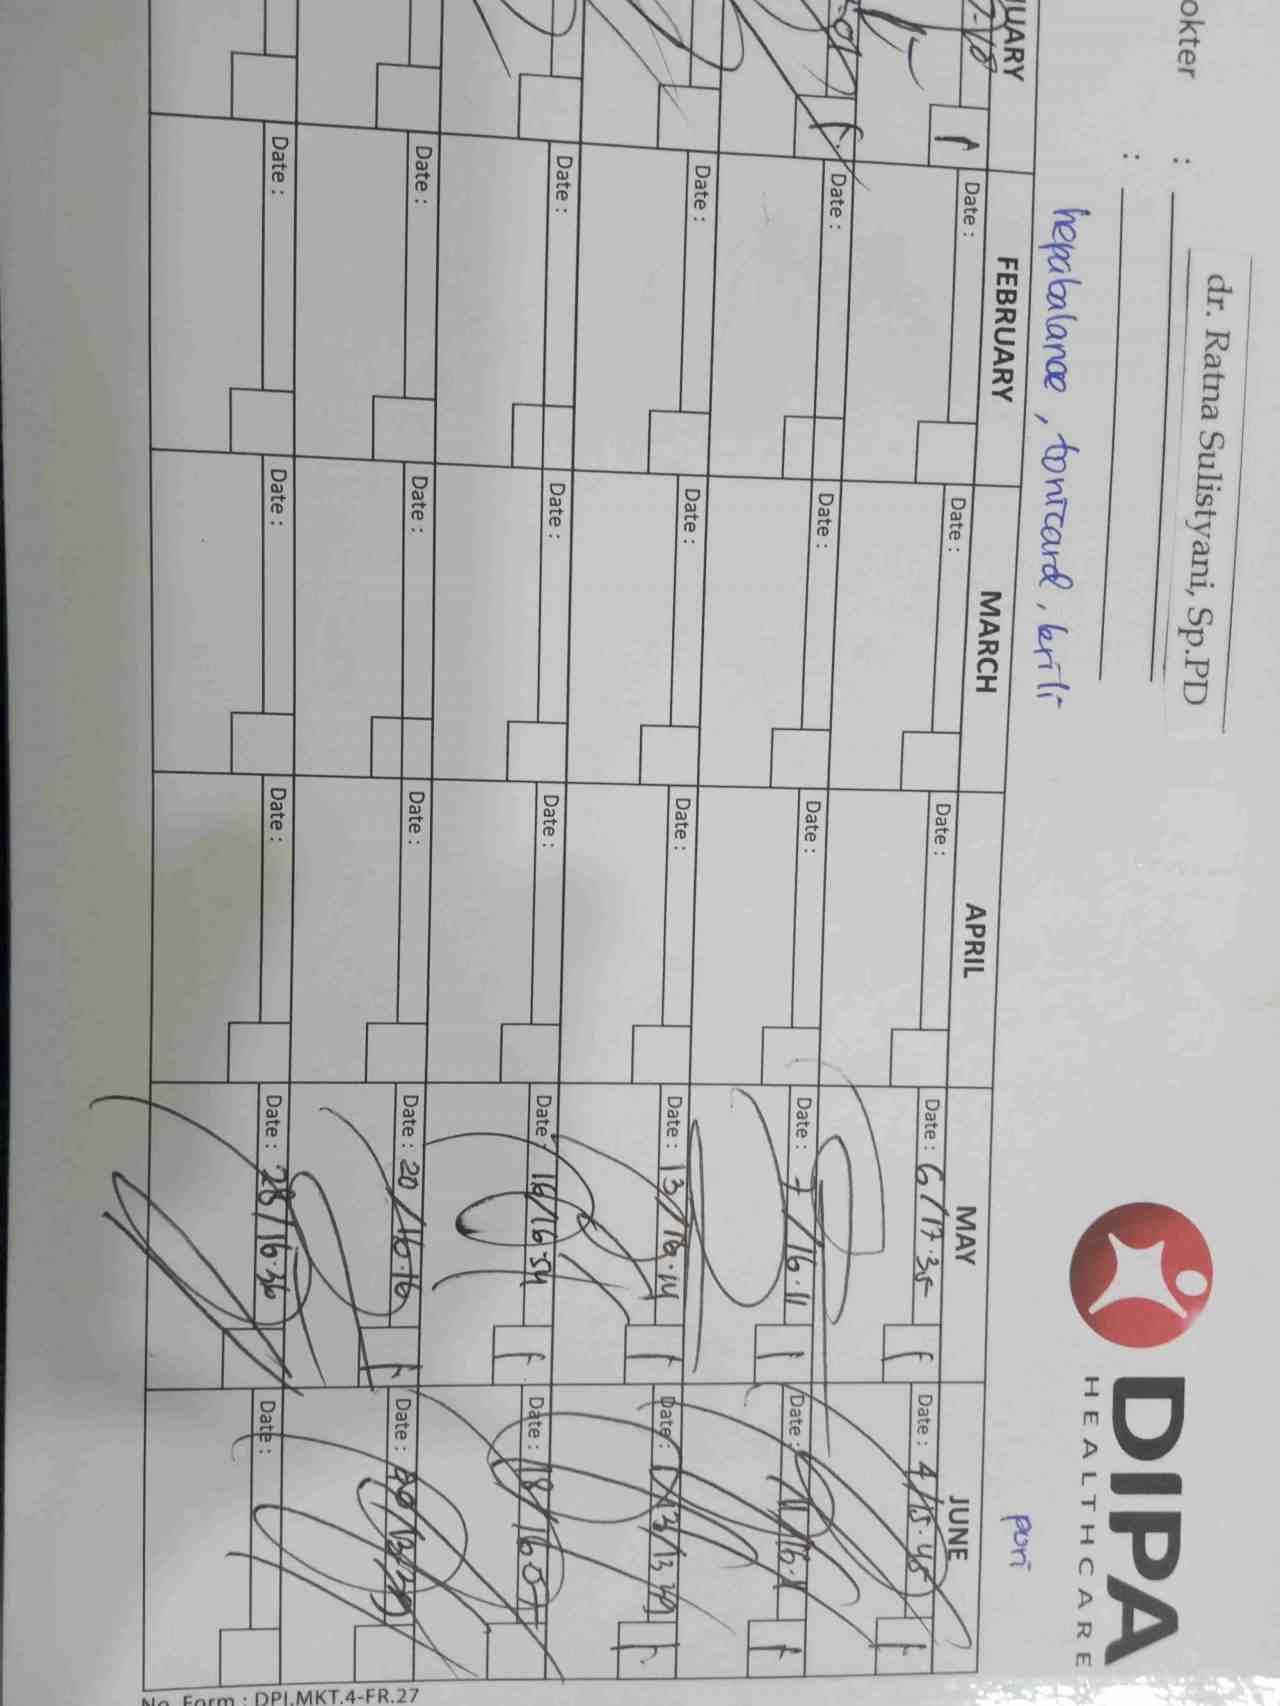 DIPA
HEALTHCARE
okter : dr. Ratna Sulistyani, Sp.PD
:
hepabalance, tonicard, krili
puri
UARY FEBRUARY MARCH APRIL MAY JUNE
Date : Date : Date : Date : 6/17.35 Date : 4/15.45
Date : Date : Date : Date : 7/16.11 Date : 11/16.
Date : Date : Date : Date : 13/16.14 Date : 13/13
Date : Date : Date : Date : 16/16.54 Date : 18/16
Date : Date : Date : Date : 20/16.16 Date :
Date : Date : Date : Date : 28/16.36 Date :
No. Form : DPI.MKT.4-FR.27